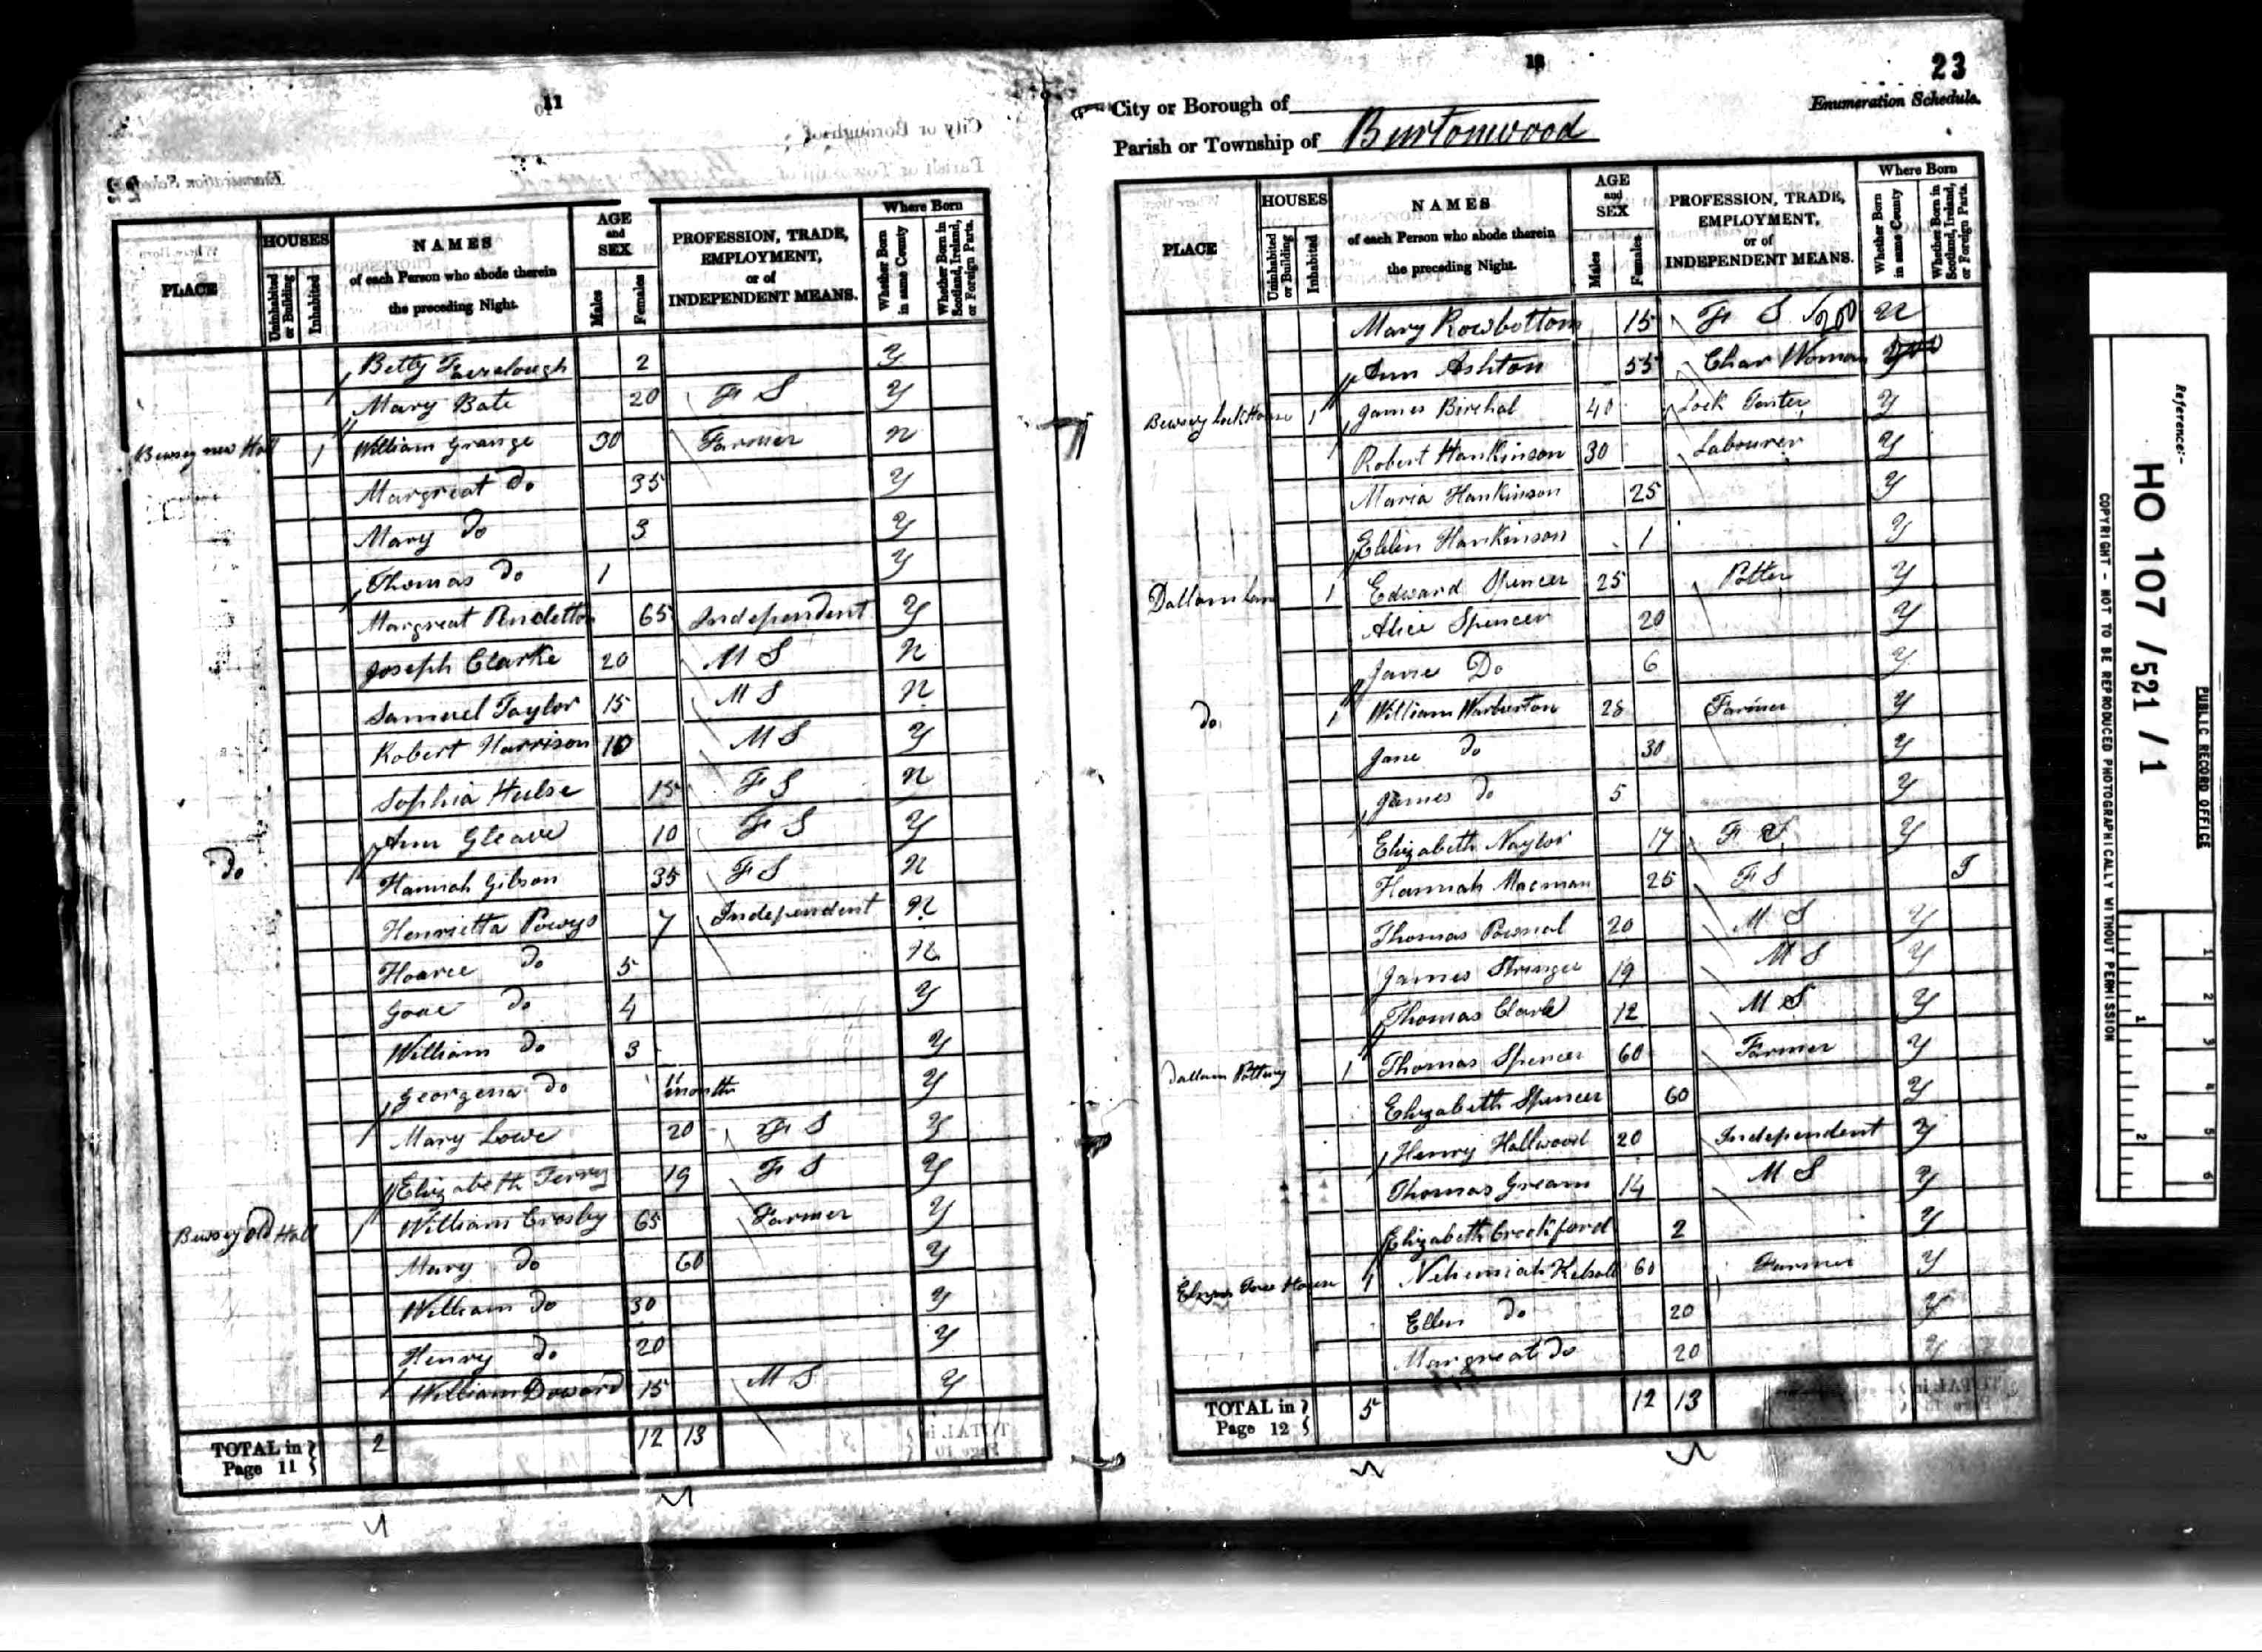 11
PLACE
HOUSES
Uninhabited or Building
Inhabited
NAMES
of each Person who abode therein
the preceding Night.
AGE
and
SEX
Males
Females
PROFESSION, TRADE,
EMPLOYMENT,
or of
INDEPENDENT MEANS.
Where Born
Whether Born in same County
Whether Born in Scotland, Ireland, or Foreign Parts.
Betty Fairclough 2 Y
Mary Bate 20 F S Y
Bewsey new Hall 1 William Grange 30 Farmer N
Margreat Do 35 Y
Mary Do 3 Y
Thomas Do 1 Y
Margreat 65 Independent Y
Joseph Clarke 20 M S N
Samuel Taylor 15 M S N
Robert Harrison 10 M S Y
Sophia Hulse 15 F S N
Ann Gleave 10 F S Y
Do Hannah Gibson 35 F S N
Henrietta Powys 7 Independent N
Do 5 N
Do 4 Y
William Do 3 Y
Georgena Do 11 months Y
Mary Lowe 20 F S Y
Elizabeth 19 F S Y
Bewsey Old Hall 1 William Crosby 65 Farmer Y
Mary Do 60 Y
William Do 30 Y
Henry Do 20 Y
William Doward 15 M S Y
TOTAL in Page 11 2 12 13
12
23
City or Borough of
Enumeration Schedule.
Parish or Township of Burtonwood
PLACE
HOUSES
Uninhabited or Building
Inhabited
NAMES
of each Person who abode therein
the preceding Night.
AGE
and
SEX
Males
Females
PROFESSION, TRADE,
EMPLOYMENT,
or of
INDEPENDENT MEANS.
Where Born
Whether Born in same County
Whether Born in Scotland, Ireland, or Foreign Parts.
Mary Rowbottom 15 F S N
Ann Ashton 55 Char Woman
Bewsey Lock House 1 James Birchal 40 Lock Tenter Y
Robert Hankinson 30 Labourer Y
Maria Hankinson 25 Y
Ellen Hankinson 1 Y
Dallam Lane 1 Edward Spencer 25 Potter Y
Alice Spencer 20 Y
Jane Do 6 Y
Do 1 William Warburton 25 Farmer Y
Jane Do 30 Y
James Do 5 Y
Elizabeth Naylor 17 F S Y
Hannah Macman 25 F S I
Thomas Pownal 20 M S Y
James Stringer 19 M S Y
Thomas Clark 12 M S Y
Dallam Pottery 1 Thomas Spencer 60 Farmer Y
Elizabeth Spencer 60 Y
Henry Hallwood 20 Independent Y
Thomas Gream 14 M S Y
Elizabeth Crockford 2 Y
Tree House 1 Nehemiah Kelsall 60 Farmer Y
Ellen Do 20 Y
Margreat Do 20 Y
TOTAL in Page 12 5 12 13
Reference:-
HO 107 / 521 / 1
PUBLIC RECORD OFFICE
COPYRIGHT - NOT TO BE REPRODUCED PHOTOGRAPHICALLY WITHOUT PERMISSION
1
2
1
2
3
4
5
6